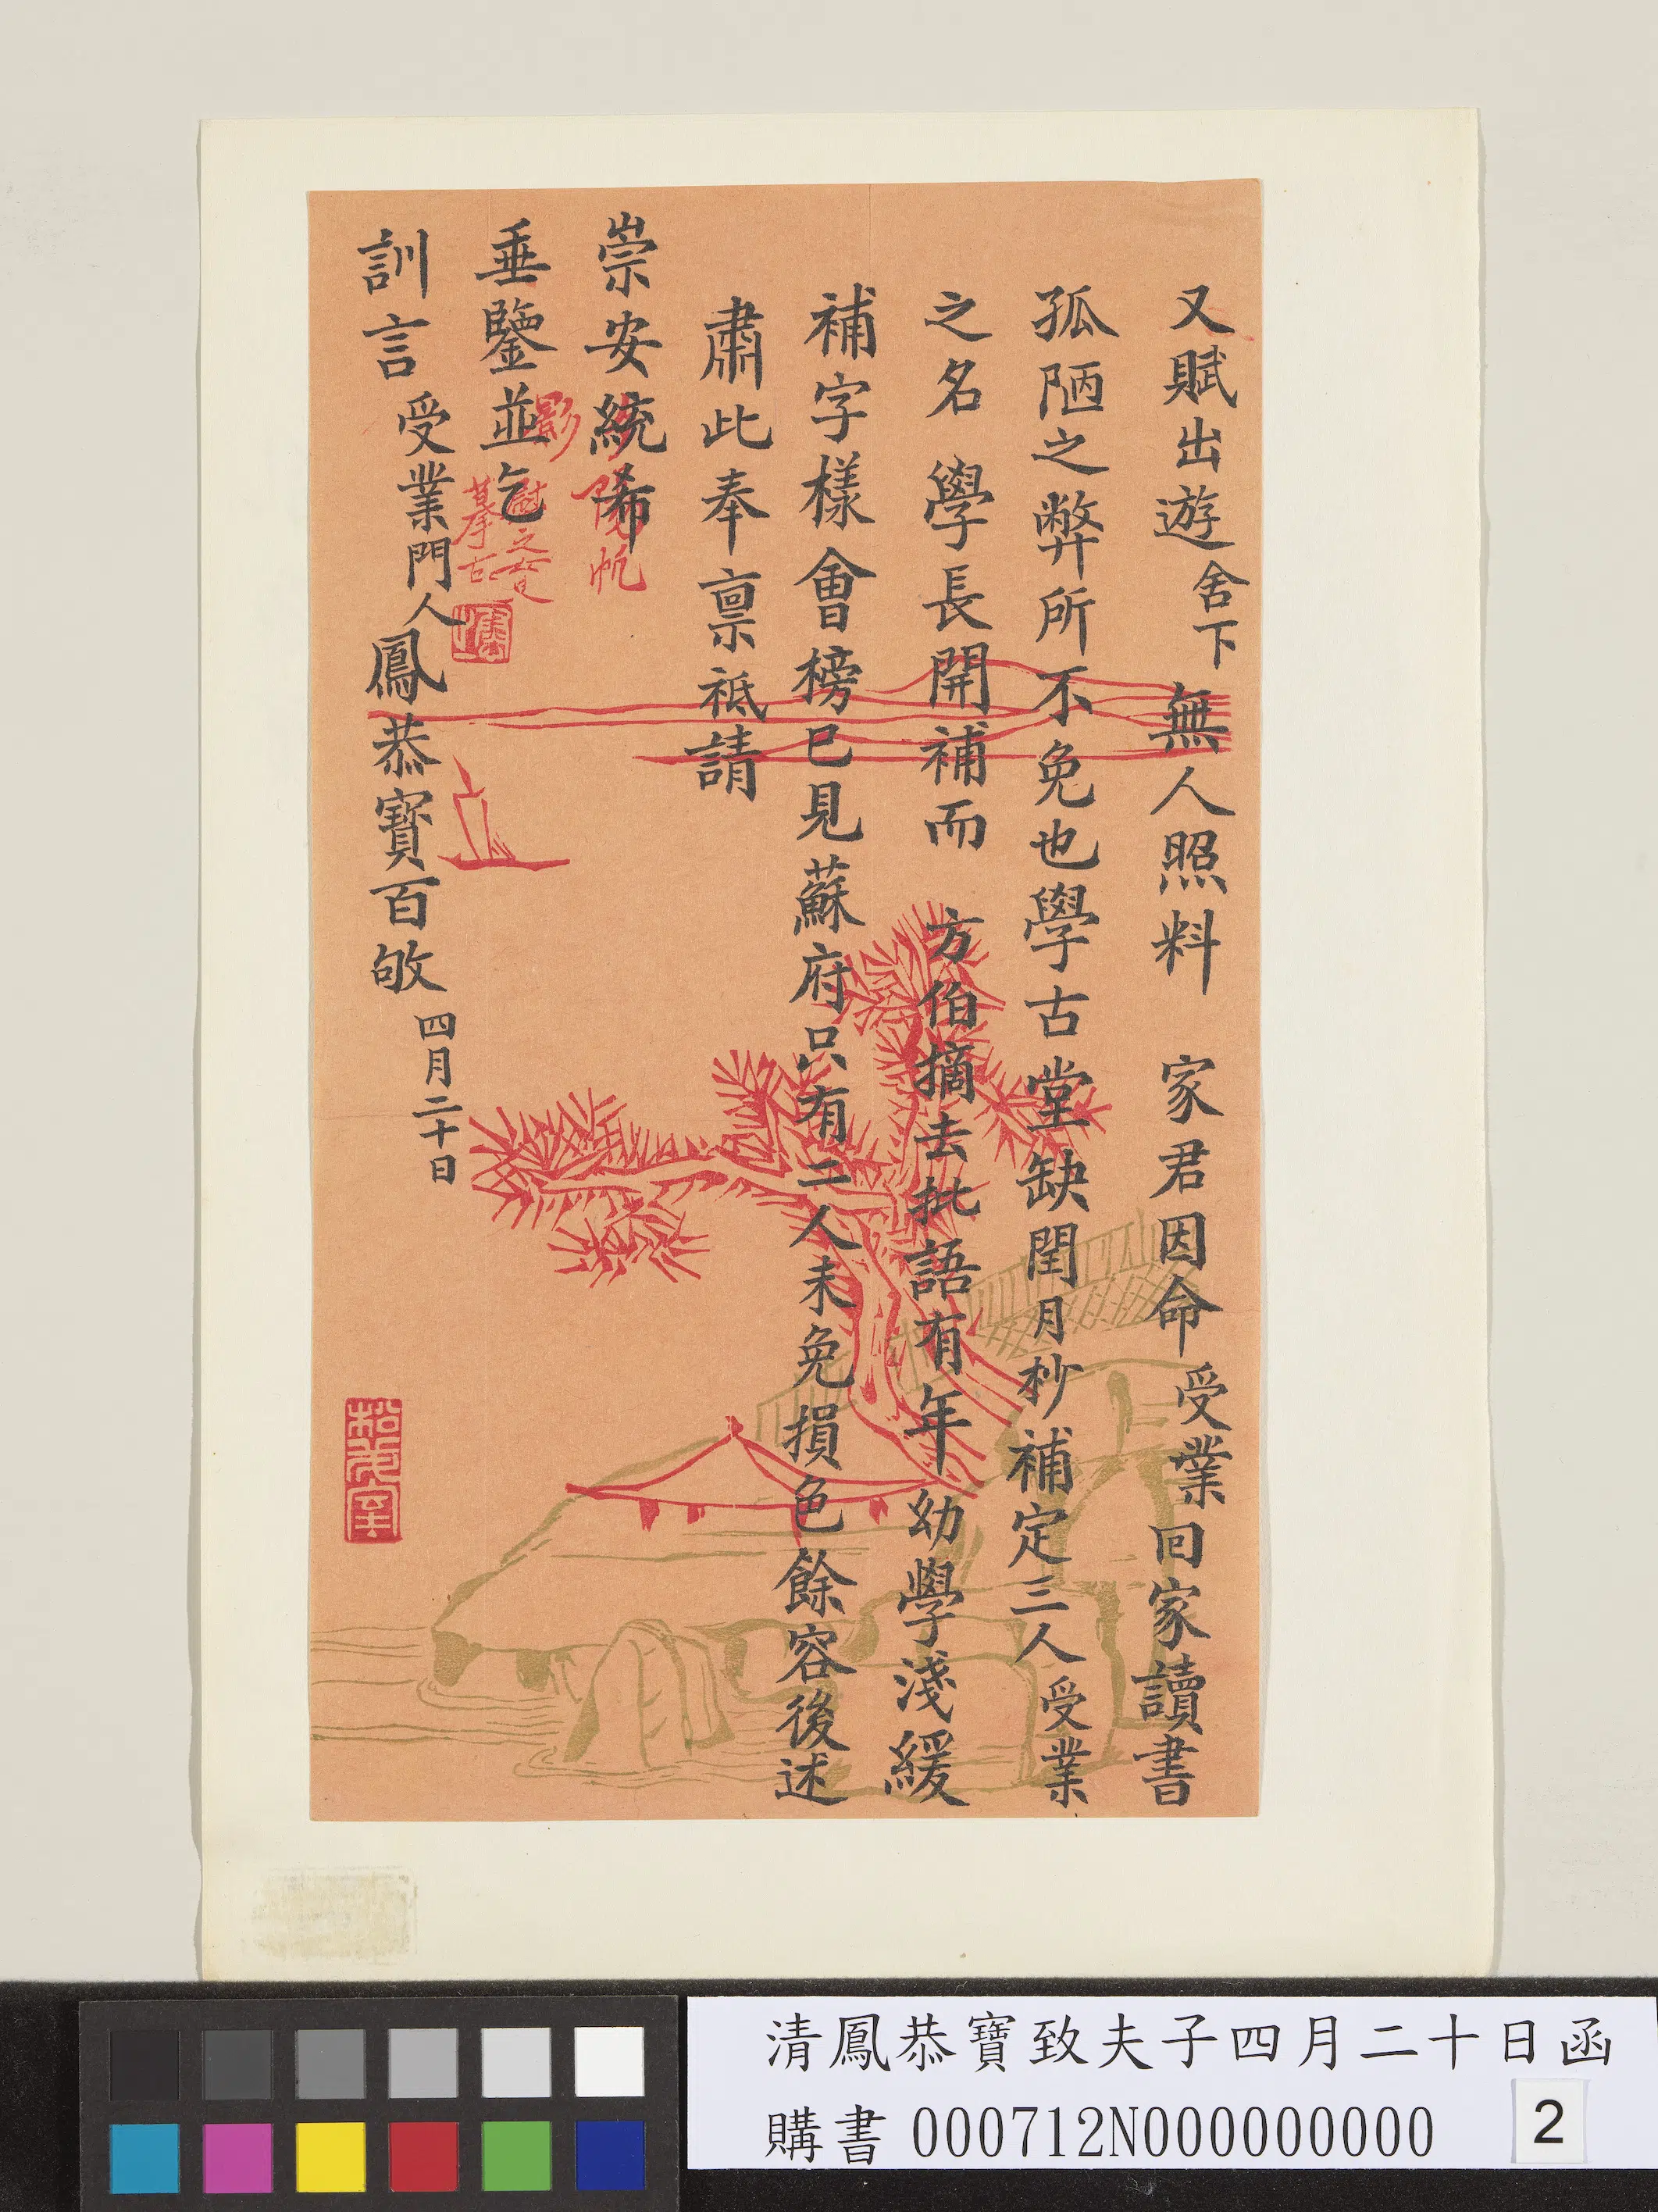 又賦出遊舍下無人照料 家君因命受業回家讀書
孤陋之弊所不免也學古堂缺閏月杪補定三人受業
之名 學長開補而 方伯摘去批語有年幼學淺緩
補字樣會榜已見蘇府只有二人未免損色餘容後述
肅此奉稟祗請
崇安統希
垂鑒並乞
訓言 受業門人鳳恭寶百敂 四月二十日
摹古
清鳳恭寶致夫子四月二十日函
購書 000712N000000000
2